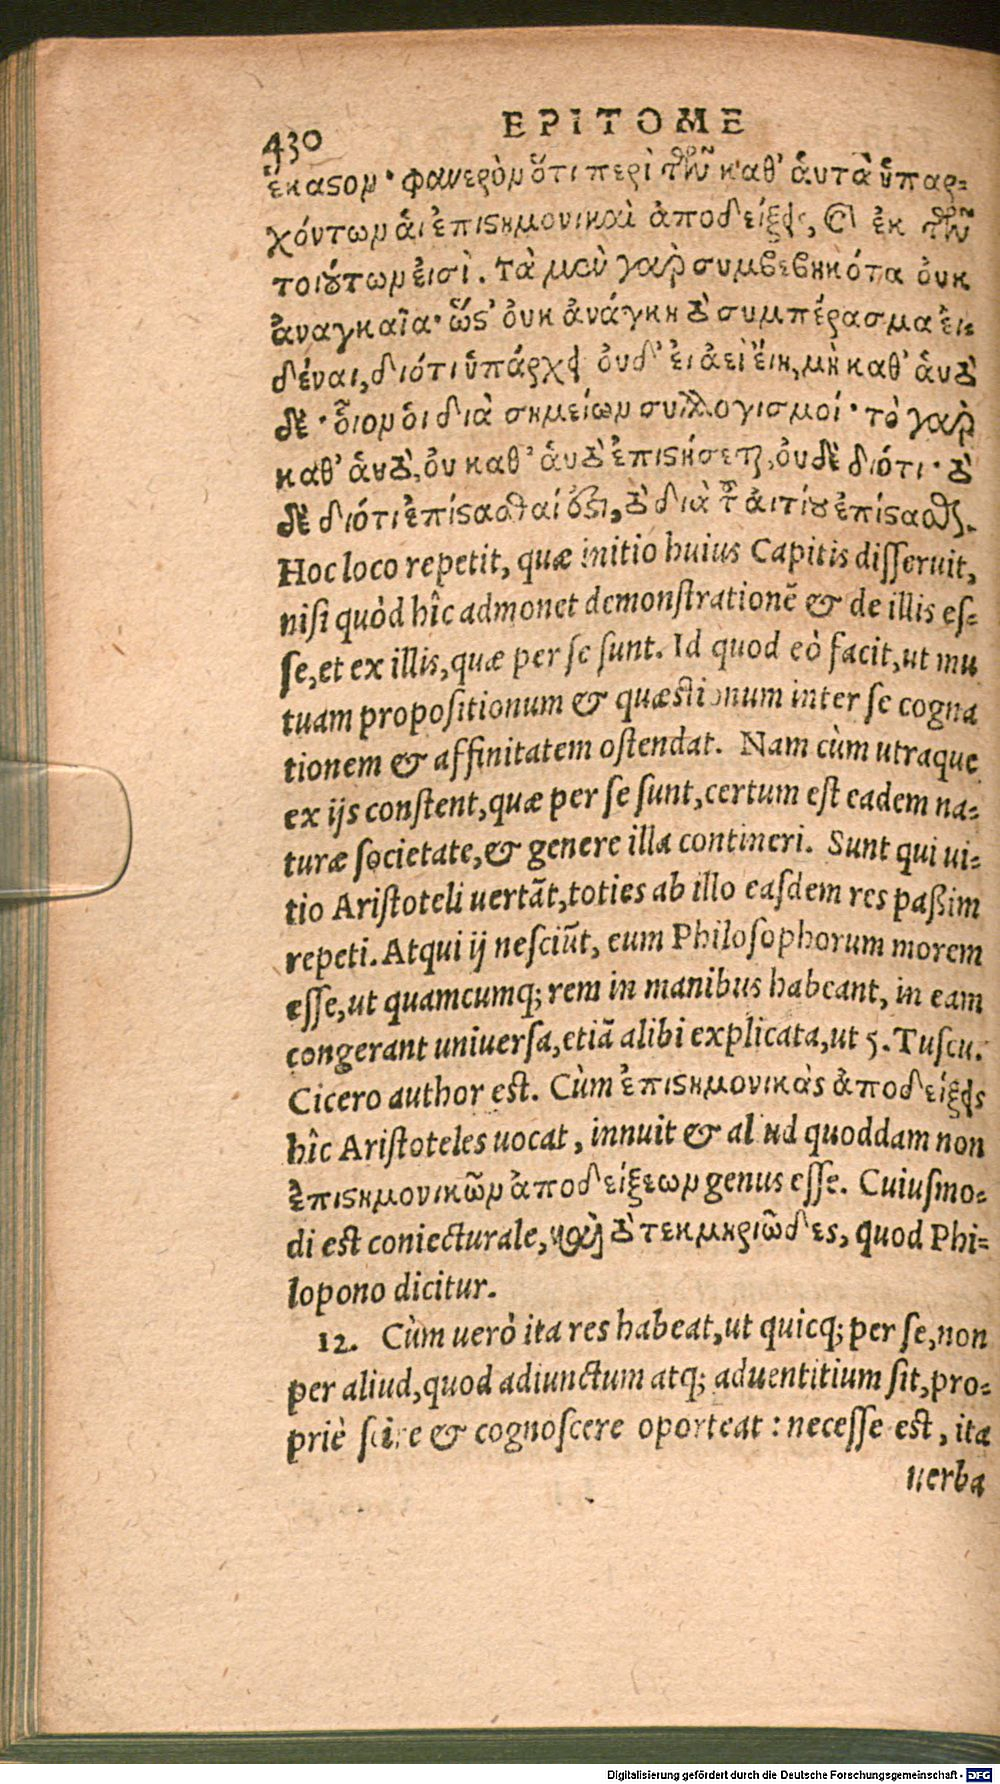 430 EPITOME
ἕκαστον· φανερὸν ὅτι περὶ τῶν καθ' ἁυτὰ ὑπαρ=
χόντων ἁι ἐπιστημονικαὶ ἀποδείξεις, καὶ ἐκ τῶν
τοιούτων ἐισὶ. Τὰ μὲν γὰρ συμβεβηκότα ὀυκ
ἀναγκαῖα· ὥστ' ὀυκ ἀνάγκη τὸ συμπέρασμα ἐι=
δέναι, διότι ὑπάρχει ὀυδ' ἐι ἀεὶ ἔιη, μὴ καθ' ἁυτὸ
δὲ· ὅιον ὁι διὰ σημείων συλλογισμοί· τὸ γὰρ
καθ' ἁυτὸ, ὀυ καθ' ἁυτὸ ἐπιστήσεται, ὀυδὲ διότι· τὸ
δὲ διότι ἐπίστασθαί ὅξι, τὸ διὰ τοῦ ἀιτίου ἐπίστασθαι.
Hoc loco repetit, quæ initio huius Capitis disseruit,
nisi quòd hîc admonet demonstrationẽ & de illis es=
se, et ex illis, quæ per se sunt. Id quod eò facit, ut mu
tuam propositionum & quæstionum inter se cogna
tionem & affinitatem ostendat. Nam cùm utraque
ex ijs constent, quæ per se sunt, certum est eadem na=
turæ societate, & genere illa contineri. Sunt qui ui=
tio Aristoteli uertãt, toties ab illo easdem res paßim
repeti. Atqui ij nesciũt, eum Philosophorum morem
esse, ut quamcumq; rem in manibus habeant, in eam
congerant uniuersa, etiã alibi explicata, ut 5. Tuscu.
Cicero author est. Cùm ἐπιστημονικὰς ἀποδείξεις
hîc Aristoteles uocat, innuit & aliud quoddam non
ἐπιστημονικῶν ἀποδείξεων genus esse. Cuiusmo=
di est coniecturale, καὶ τὸ τεκμηριῶδες, quod Phi=
lopono dicitur.
12. Cùm uerò ita res habeat, ut quicq; per se, non
per aliud, quod adiunctum atq; aduentitium sit, pro=
priè scire & cognoscere oporteat: necesse est, ita
uerba
Digitalisierung gefördert durch die Deutsche Forschungsgemeinschaft - DFG